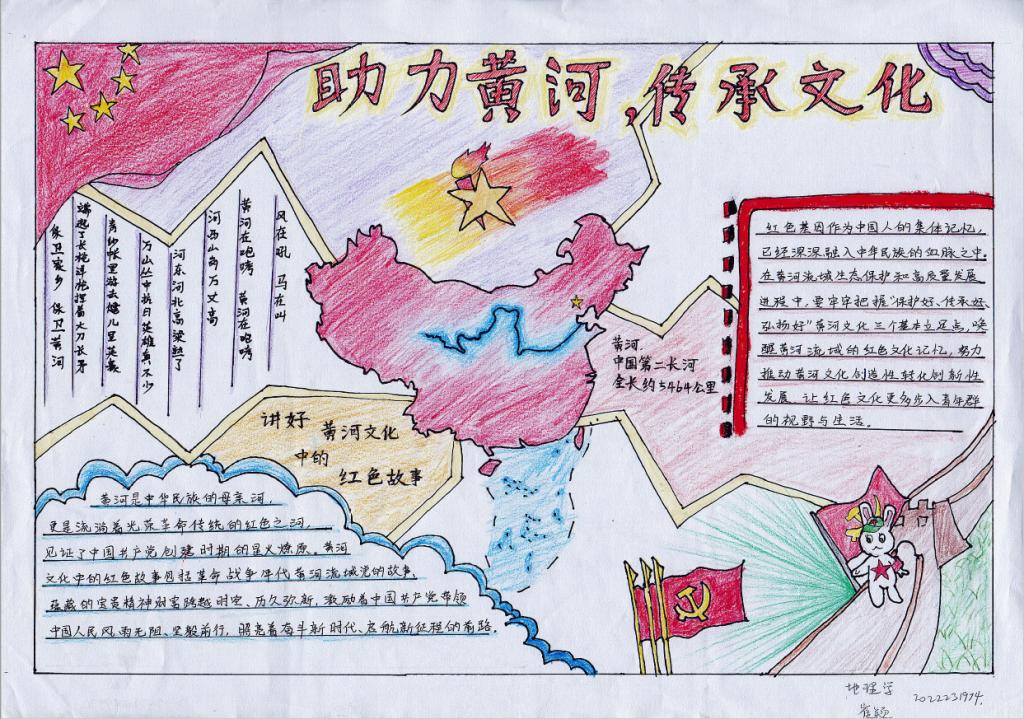 助力黄河,传承文化
风在吼 马在叫
黄河在咆哮 黄河在咆哮
河西山岗万丈高
河东河北高粱熟了
万山丛中抗日英雄真不少
青纱帐里游击健儿逞英豪
端起了长枪洋枪挥着大刀长矛
保卫家乡 保卫黄河
红色基因作为中国人的集体记忆,
已经深深融入中华民族的血脉之中.
在黄河流域生态保护和高质量发展
进程中,要牢牢把握"保护好、传承好、
弘扬好"黄河文化三个基本立足点,唤
醒黄河流域的红色文化记忆,努力
推动黄河文化创造性转化创新性
发展 让红色文化更多步入青年群
的视野与生活。
黄河
中国第二长河
全长约5464公里
讲好
黄河文化
中的
红色故事
黄河是中华民族的母亲河,
更是流淌着光荣革命传统的红色之河,
见证了中国共产党创建时期的星火燎原。黄河
文化中的红色故事包括革命战争年代黄河流域党的故事,
蕴藏的宝贵精神财富跨越时空、历久弥新,激励着中国共产党带领
中国人民风雨无阻、坚毅前行,照亮着奋斗新时代、启航新征程的前路.
地理学
崔颖
2022231974.